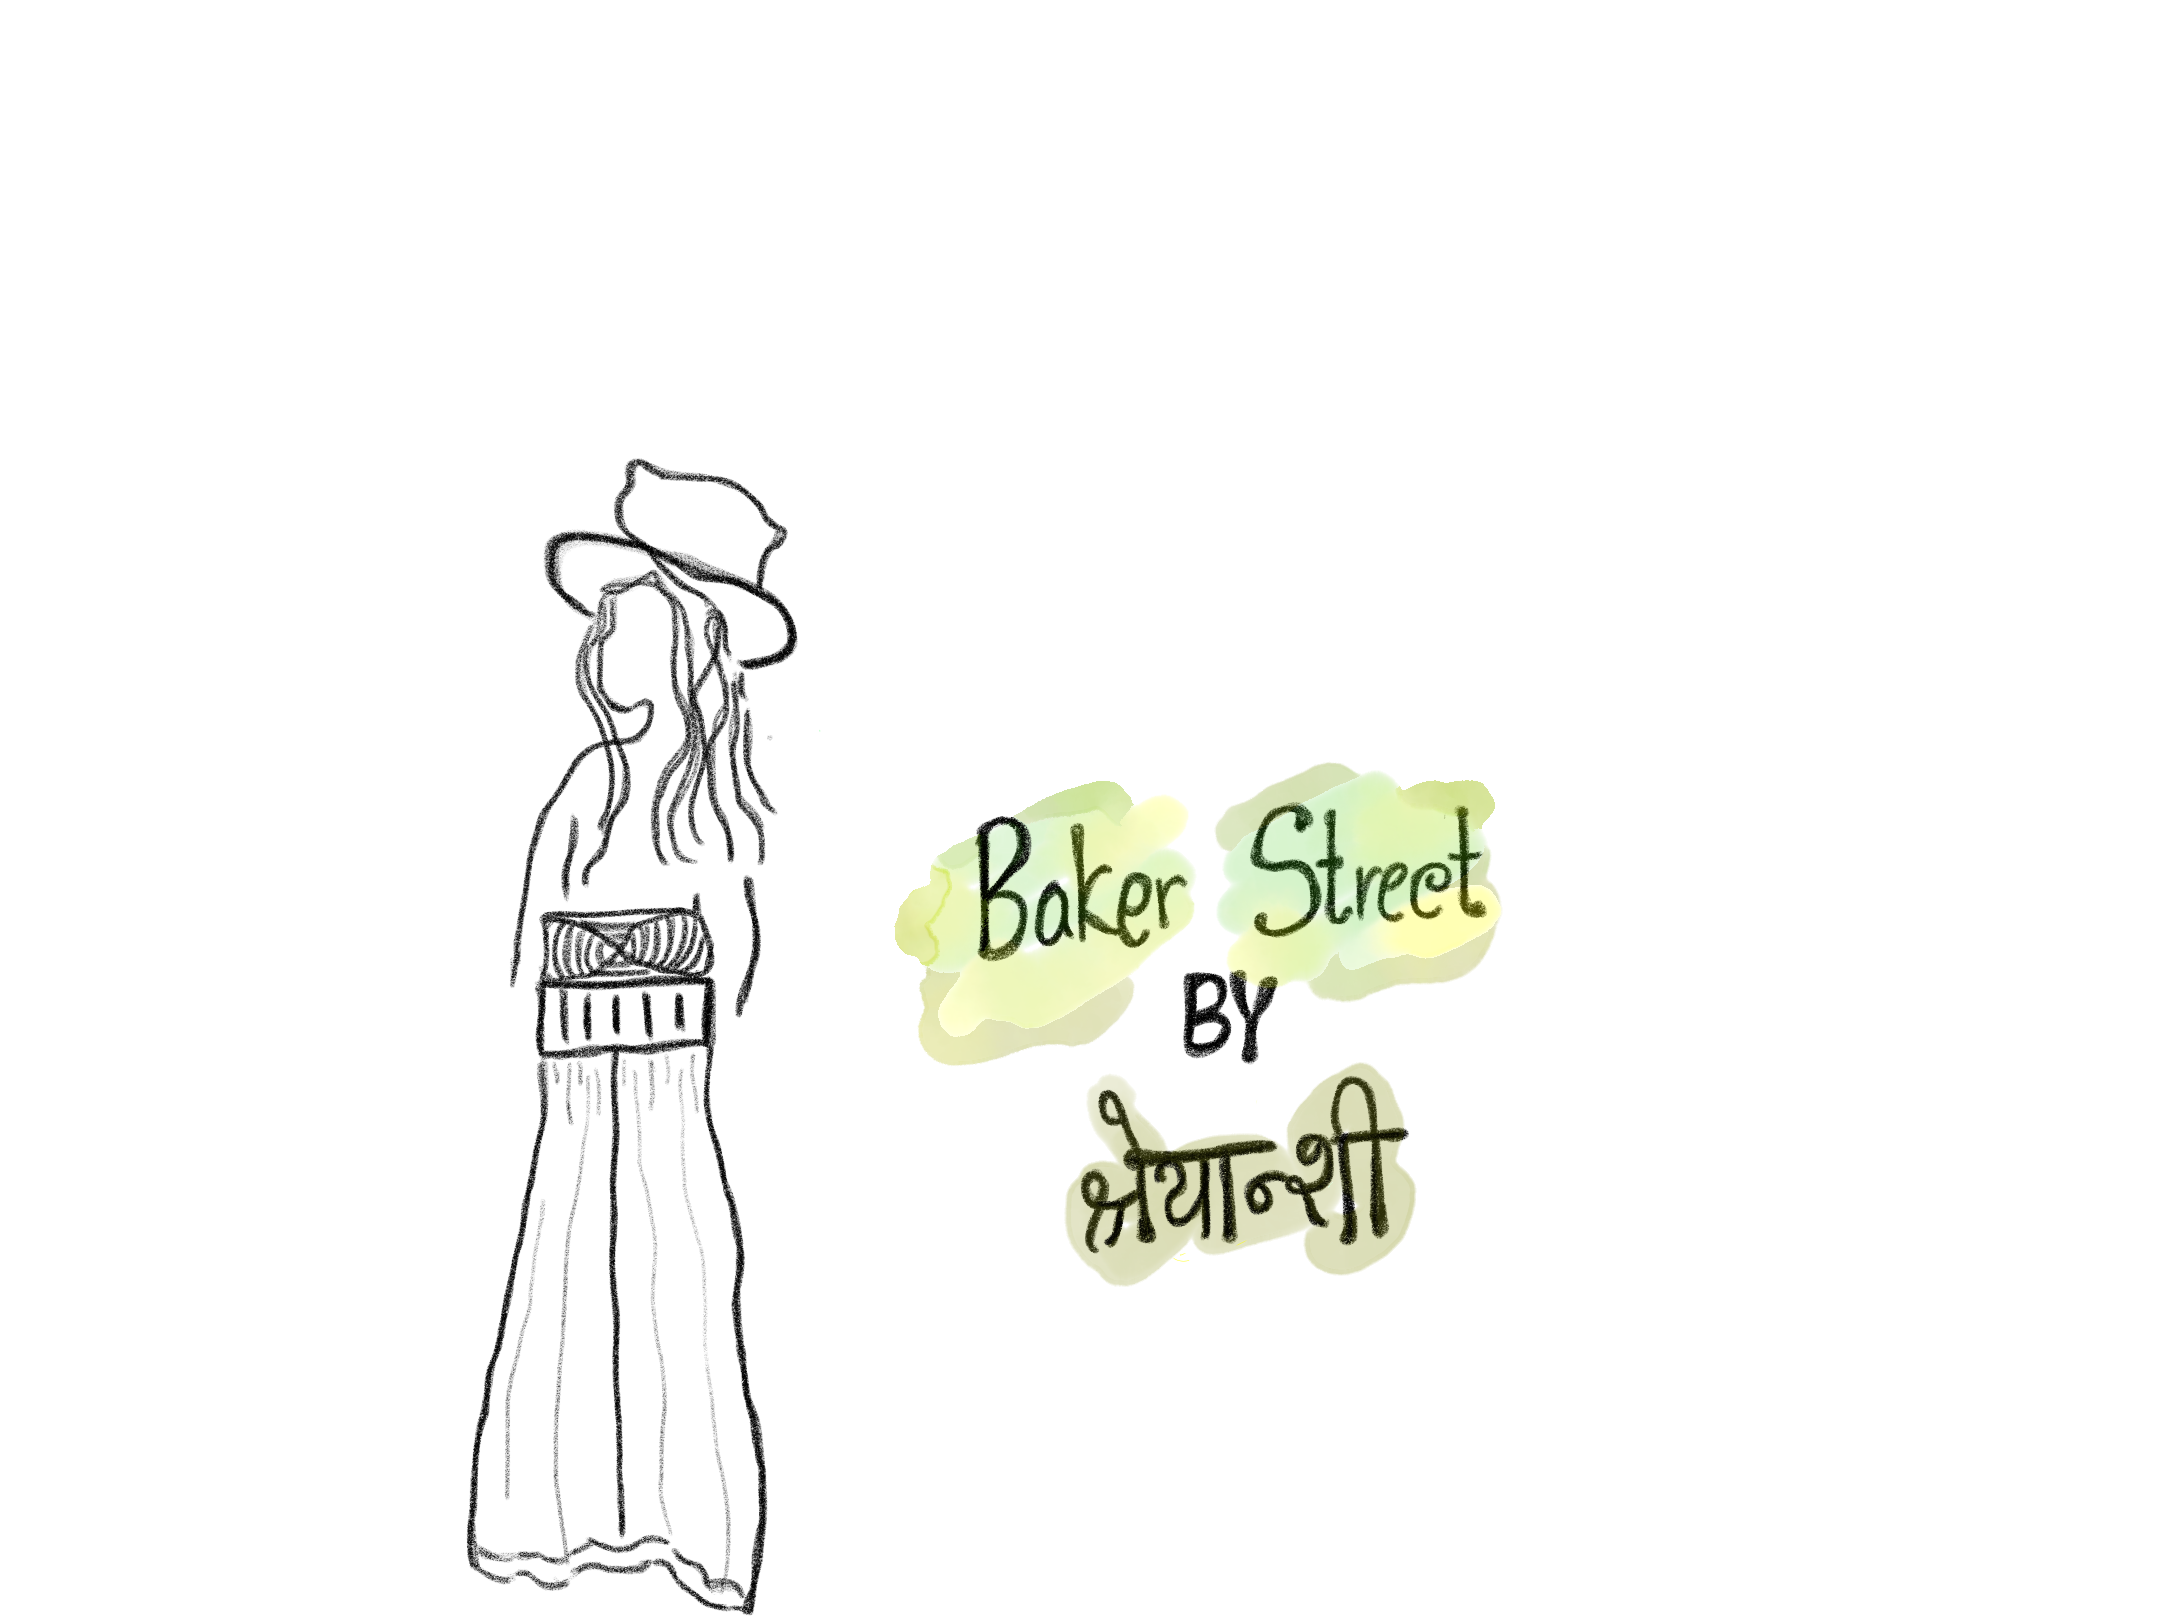 Baker Street
BY
श्रेयान्शी